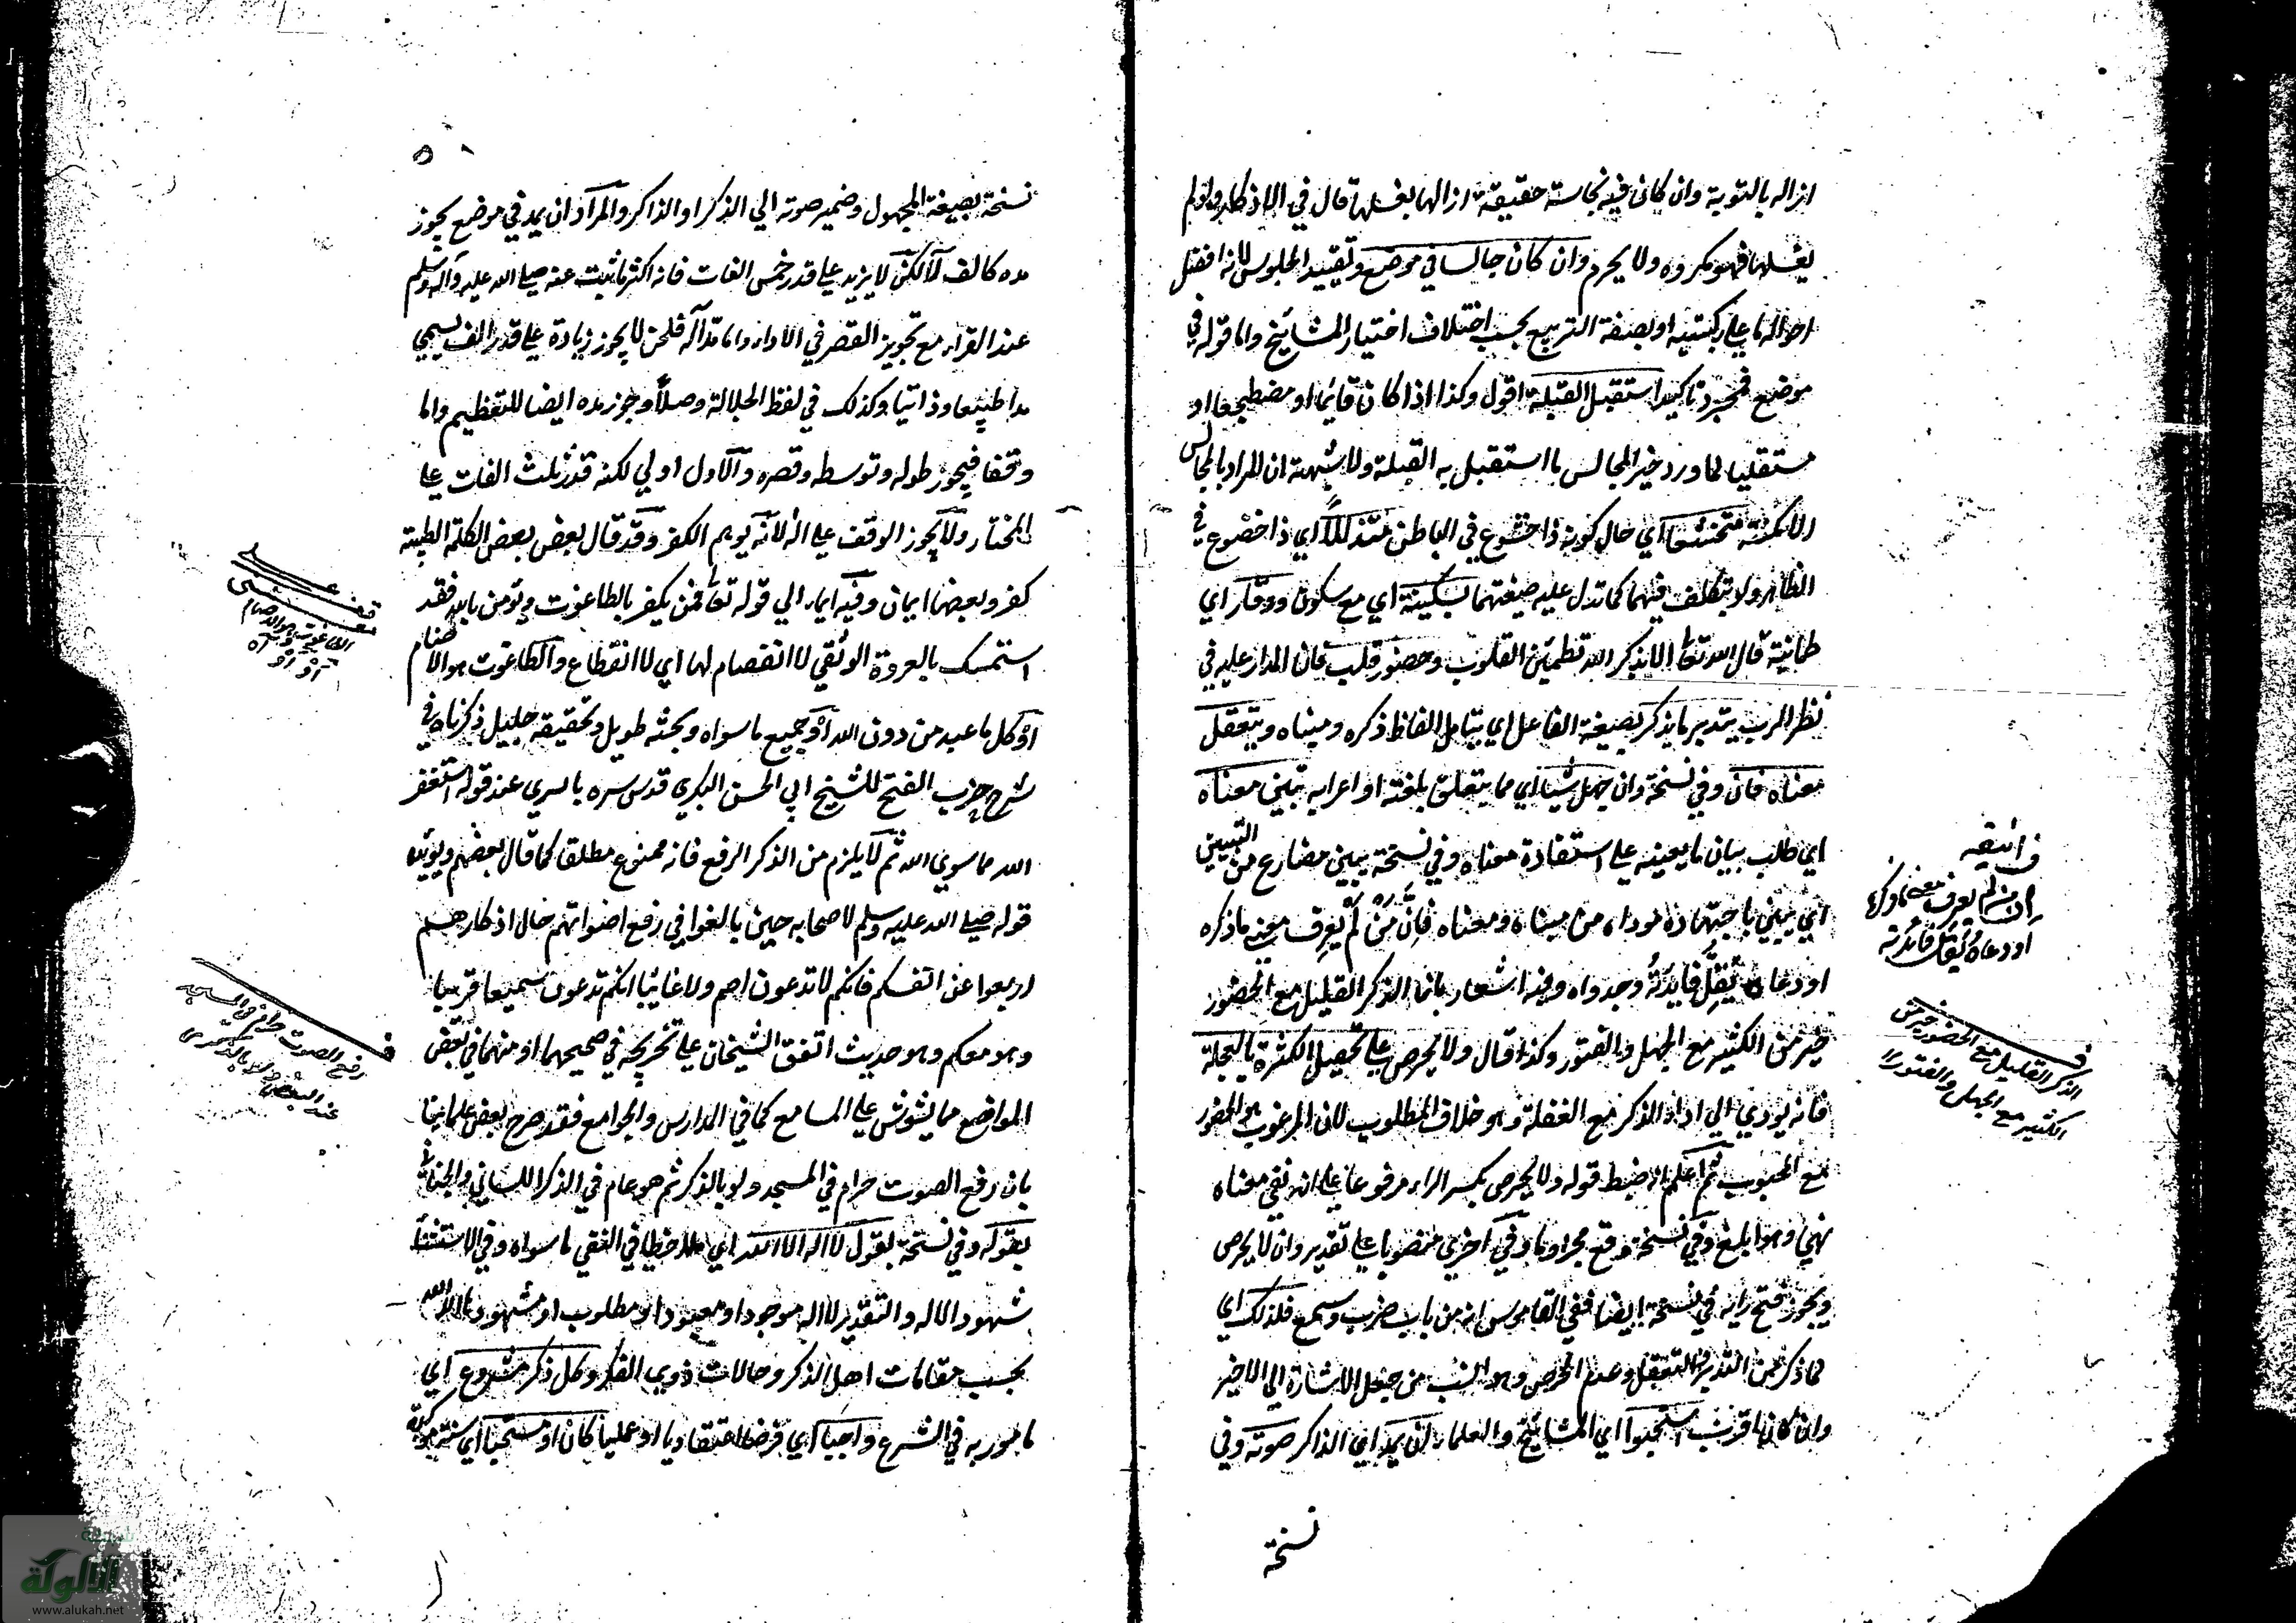 ازاله بالتوبة وان كان فيه نجاسة حقيقة ازالها بغسلها قال في الاذكار ولو لم
يغسلها فهو مكروه ولا يحرم وان كان جالسا في موضع وتقييد الجلوس لانه افضل
احواله اما على ركبتيه او بصفة التربيع بحسب اختلاف اختيار المشايخ واما قوله في
موضع فمجرد تاكيد استقبل القبلة اقول وكذا اذا كان قائما او مضطجعا او
مستقليا لما ورد خير المجالس ما استقبل به القبلة ولا شبهة ان المراد بالمجالس
الامكنة متخشعا اي حال كونه ذا خشوع في الباطن متذللا اي ذا خضوع في
الظاهر ولا يتكلف فيهما كما تدل عليه صيغتهما بسكينة اي مع سكون ووقار اي
طمانينة قال الله تعا الا بذكر الله تطمئن القلوب وحضور قلب فان المدار عليه في
نظر الرب يتدبر ما يذكر بصيغة الفاعل اي يتامل الفاظ ذكره ومبناه ويتعقل
معناه فان وفي نسخة وان جهل شيئا اي مما يتعلق بلغته او اعرابه تبين معناه
اي طلب بيان ما يعينه على استفادة معناه وفي نسخة يبين مضارع من التبيين
اي يبين باجتهاده موداه من مبناه ومعناه فان من لم يعرف معنى ما ذكره
او دعاه يقل فايدته وجدواه وفيه اشعار بان الذكر القليل مع الحضور
خير من الكثير مع الجهل والفتور وكذا قال ولا يحرص على تحصيل الكثرة بالعجلة
فانه يودي الى اداء الذكر مع الغفلة وهو خلاف المطلوب لان المرغوب هو الحضور
مع المحبوب ثم اعلم انه ضبط قوله ولا يحرص بكسر الراء مرفوعا على انه نفي معناه
نهي وهو ابلغ وفي نسخة وقع مجزوما وفي اخرى منصوبا على تقدير وان لا يحرص
ويجوز فتح رايه في نسخة ايضا ففي القاموس انه من باب ضرب وسمع فلذلك اي
لما ذكر من التدبر والتعقل وعدم الحرص وهو انسب من جعل الاشارة الى الاخير
وان كان اقرب استحبوا اي المشايخ والعلماء ان يمد اي الذاكر صوته وفي
نسخة
ان من لم يعرف معنى ما ذكره
او دعاه يقل فائدته
الذكر القليل مع الحضور خير من
الكثير مع الجهل والفتور
نسخة بصيغة المجهول وضمير صوته الى الذكر او الذاكر والمراد ان يمد في موضع يجوز
مده كالف لا لكن لا يزيد على قدر خمس الفات فانه اكثر ما ثبت عنه صلى الله عليه وآله وسلم
عند القراء مع تجويز القصر في الاداء واما مد اله فلحن لا يجوز زيادة على قدر الف يسمى
مدا طبيعا وذاتيا وكذلك في لفظ الجلالة وصلا وجوز مده ايضا للتعظيم واما
وقفا فيجوز طوله وتوسطه وقصره والاول اولى لكنه قدر ثلث الفات على
المختار ولا يجوز الوقف على اله لانه يوهم الكفر وقد قال بعض بعض الكلمة الطيبة
كفر وبعضها ايمان وفيه ايماء الى قوله تعا فمن يكفر بالطاغوت ويؤمن بالله فقد
استمسك بالعروة الوثقى لا انفصام لها اي لا انقطاع والطاغوت هو الاصنام
او كل ما عبد من دون الله او جميع ما سواه وبحثه طويل وتحقيقه جليل ذكرناه في
شرح حزب الفتح للشيخ ابي الحسن البكري قدس سره بالسرى عند قوله استغفر
الله مما سوى الله ثم لا يلزم من الذكر الرفع فانه ممنوع مطلقا كما قال بعضهم ويؤيده
قوله صلى الله عليه وسلم لاصحابه حين بالغوا في رفع اصواتهم حال اذكارهم
اربعوا عن انفسكم فانكم لا تدعون اصم ولا غائبا انكم تدعون سميعا قريبا
وهو معكم وهو حديث اتفق الشيخان على تخريجه في صحيحهما او منهما في بعض
المواضع مما يشوش على السامع كما في المدارس والجوامع فقد صرح بعض علمائنا
بان رفع الصوت حرام في المسجد ولو بالذكر ثم هو عام في الذكر اللساني والجناني
بقوله وفي نسخة بقول لا اله الا الله اي ملاحظا في النفي ما سواه وفي الاستثناء
شهود الاله والتقدير لا اله موجود او معبود او مطلوب او مشهود الا الله
بحسب مقامات اهل الذكر وحالات ذوي الفكر وكل ذكر مشروع اي
مامور به في الشرع واجبا اي فرضا اعتقاديا او عمليا كان او مستحبا اي سنة مؤكدة
رفع الصوت حرام في المسجد
عند البعض ولو بالذكر